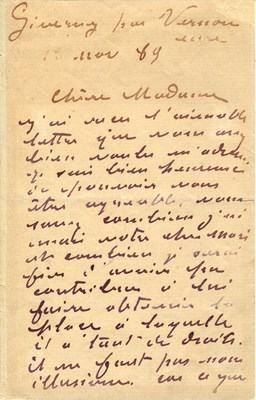 Giverny par Vernon
Eure
13 nov 89
Chère Madame
j'ai reçu l'aimable
lettre que vous avez
bien voulu m'adresser
je suis bien heureux
de pouvoir vous
être agréable, vous
savez combien j'ai
aimé votre cher mari
et combien je serai
fier d'avoir pu
contribuer à lui
faire obtenir la
place à laquelle
il a tant de droits.
il ne faut pas nous
illusionner car ce que